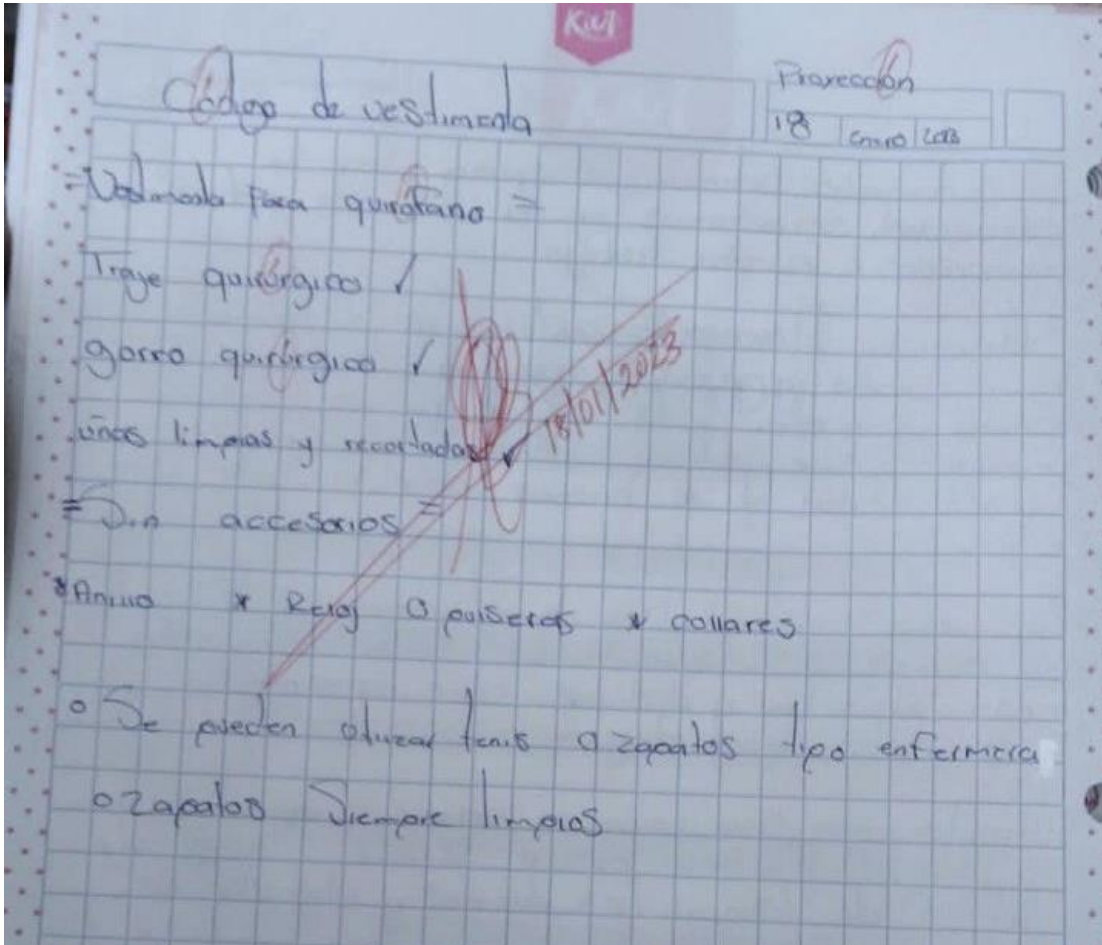 Kiut
Código de vestimenta
Proyección
18 Enero 2023
=Vestimenta para quirófano =
Traje quirúrgico ✓
gorro quirúrgico ✓
uñas limpias y recortadas ✓
18/01/2023
=Sin accesorios =
*Anillo * Reloj o pulseras * collares
o Se pueden utilizar tenis o zapatos tipo enfermera
o zapatos Siempre limpios